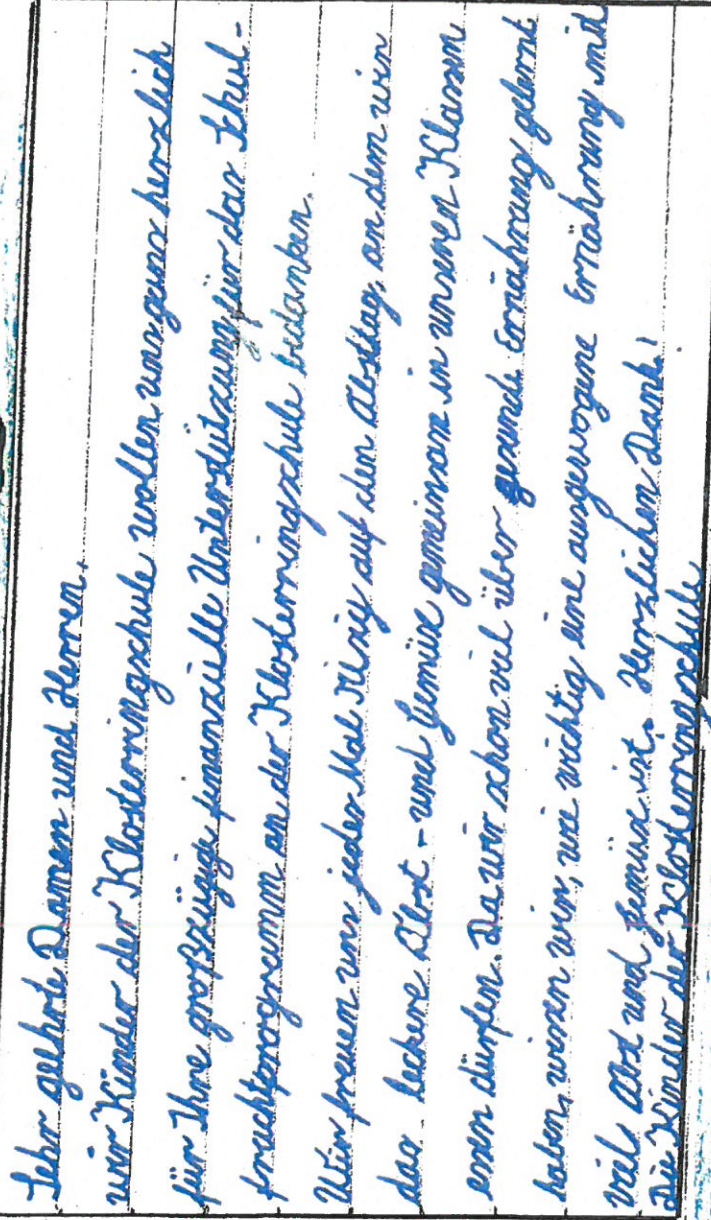 Sehr geehrte Damen und Herren,
wir Kinder der Klosterringschule wollen uns ganz herzlich
für Ihre großzügig finanzielle Unterstützung für das Schul-
fruchtprogramm an der Klosterringschule bedanken.
Wir freuen uns jedes Mal riesig auf den Obsttag, an dem wir
das leckere Obst - und Gemüse gemeinsam in unseren Klassen
essen dürfen. Da wir schon viel über gesunde Ernährung gelernt
haben, wissen wir, wie wichtig eine ausgewogene Ernährung mit
viel Obst und Gemüse ist. Herzlichen Dank!
Die Kinder der Klosterringschule